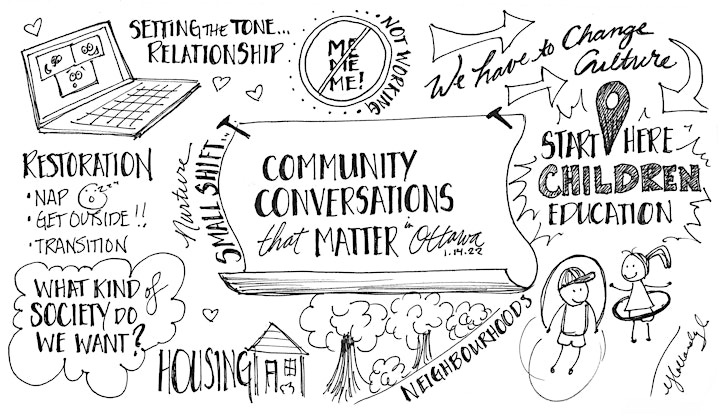 SETTING THE TONE...
RELATIONSHIP
ME
ME
ME!
NOT WORKING.
We have to Change
Culture
RESTORATION
• NAP
• GET OUTSIDE!!
• TRANSITION
Nurture
SMALL SHIFT...
COMMUNITY
CONVERSATIONS
that MATTER in Ottawa
1.14.22
START HERE
CHILDREN
EDUCATION
WHAT KIND of
SOCIETY DO
WE WANT?
HOUSING
NEIGHBOURHOODS